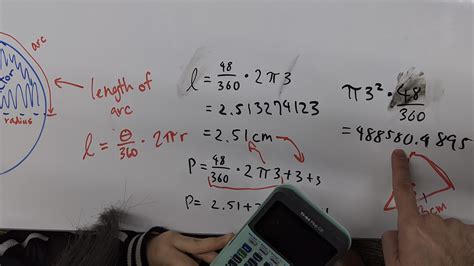 arc
tor
radius
length of
arc
l = θ/360 · 2πr
l = 48/360 · 2π3
= 2.513274123
= 2.51 cm
P = 48/360 · 2π3 + 3 + 3
P = 2.51 +
π3² · 48/360
= 488580.4895
cm